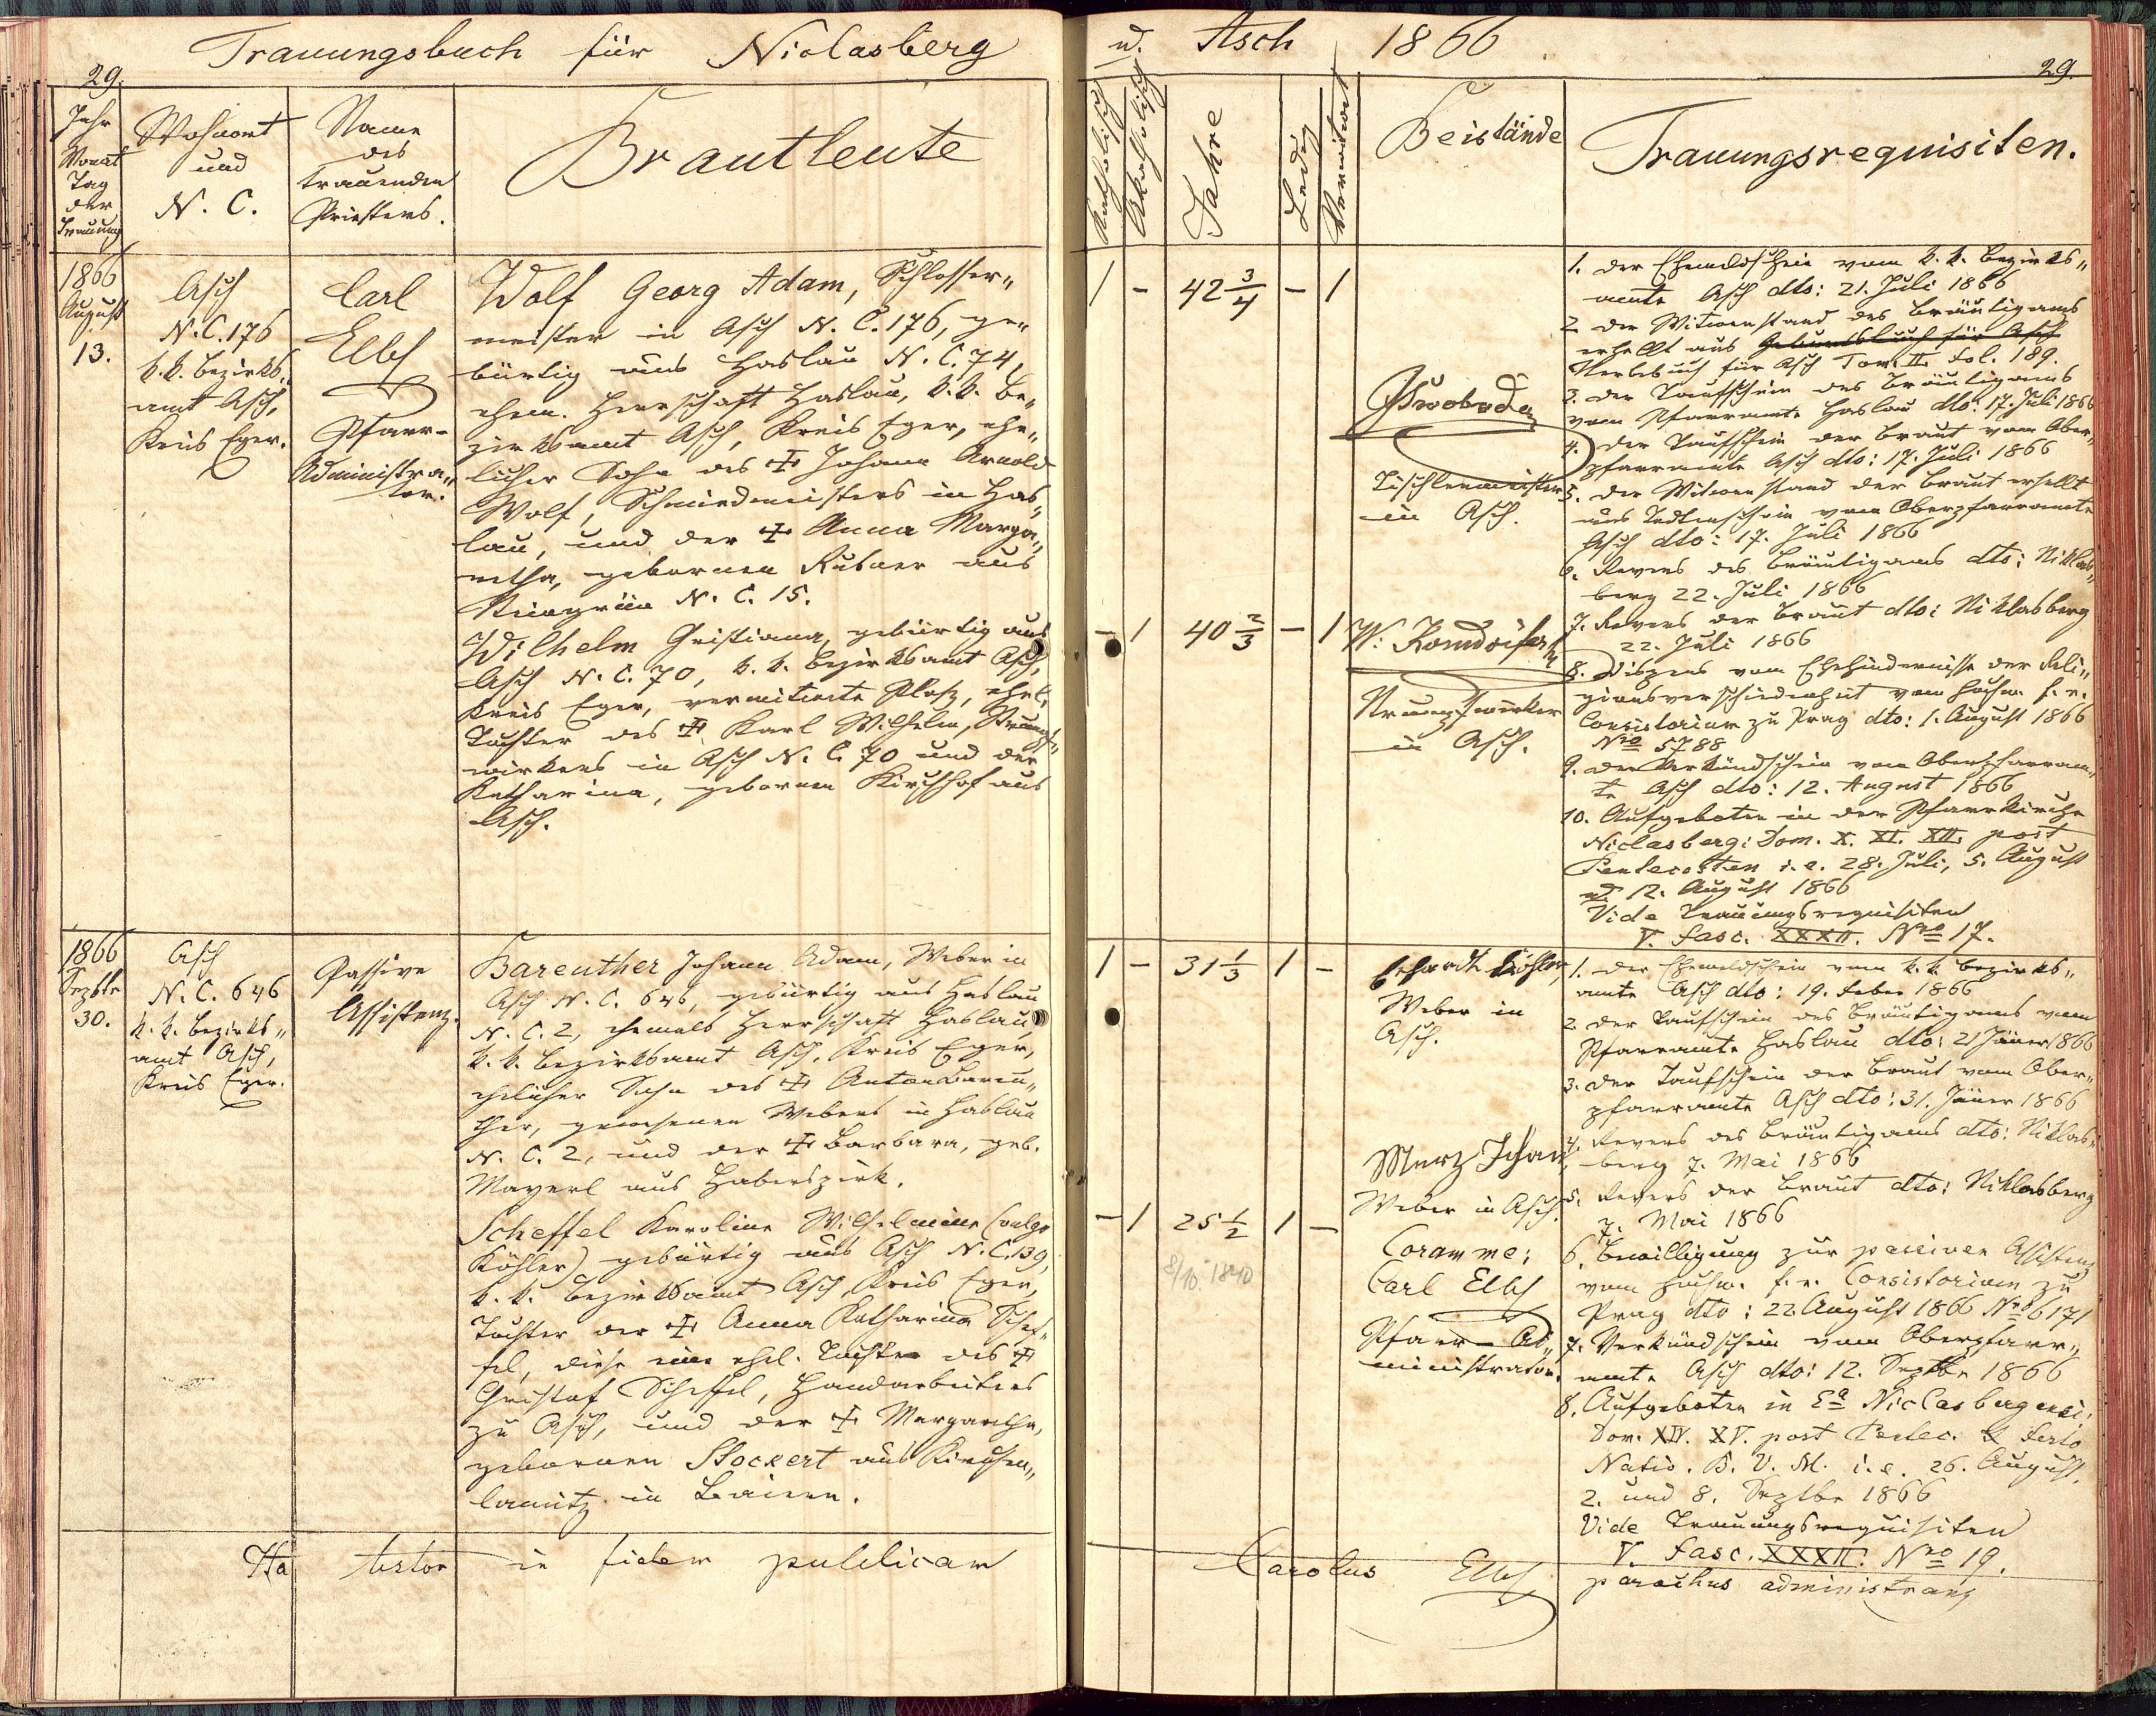 Trauungsbuch für Niclasberg
29.
Jahr
Monat
Tag
der
Trauung
Wohnort
und
N. C.
Name
des
trauenden
Priesters.
Brautleute
1866
August
13.
Asch
N. C. 176
k. k. Bezirks„
amt Asch,
Kreis Eger.
Carl
Elbl
Pfarr-
Administra„
tor.
Wolf Georg Adam, Schlosser„
meister in Asch N. C. 176, ge„
bürtig aus Haslau N. C. 74,
ehem. Herrschaft Haslau, k. k. Be„
zirksamt Asch, Kreis Eger, ehe„
licher Sohn des † Johann Arnold
Wolf, Schmiedmeisters in Has„
lau, und der † Anna Marga„
retha, gebornen Rubner aus
N. C. 15.
Wilhelm Christiana, gebürtig aus
Asch N. C. 70, k. k. Bezirksamt Asch,
Kreis Eger, verwitwete Ploß, ehel.
Tochter des † Karl Wilhelm, Strumpf„
wirkers in Asch N. C. 70 und der
Katharina, gebornen Kirchhof aus
Asch.
1866
Septbr
30.
Asch
N. C. 646
k. k. Bezirks„
amt Asch,
Kreis Eger.
Passive
Assistenz.
Bareuther Johann Adam, Weber in
Asch N. C. 646, gebürtig aus Haslau
N. C. 2, ehemals Herrschaft Haslau,
k. k. Bezirksamt Asch, Kreis Eger,
ehelicher Sohn des † Anton Bareu„
ther, gewesenen Webers in Haslau
N. C. 2, und der † Barbara, geb.
Mayerl aus Haberspirk.
Scheffel Karoline Wilhelmine (vulgo
Köhler) gebürtig aus Asch N. C. 139,
k. k. Bezirksamt Asch, Kreis Eger,
Tochter der † Anna Katharina Schef„
fel, diese eine ehel. Tochter des †
Christof Scheffel, Handarbeiters
zu Asch, und der † Margaretha,
gebornen Stockert aus Kirchen„
lamitz in Baiern.
Ita testor in fidem publicam
u. Asch 1866
29.
Katholisch
Akatholisch
Jahre
Ledig
Verwitwet
Beistände
Trauungsrequisiten.
1 - 42 3/4 - 1
Swoboda
Tischlermeister
in Asch.
- 1 40 2/3 - 1
Strumpfwirker
in Asch.
1. Der Ehemeldschein vom k. k. Bezirks„
amte Asch dto: 21. Juli 1866
2. Der Witwenstand des Bräutigams
erhellt aus Geburtsbuch für Asch
Sterbebuch für Asch Tom. II. fol. 189.
3. Der Taufschein des Bräutigams
vom Pfarramte Haslau dto: 17. Juli 1866
4. Der Taufschein der Braut vom Ober„
pfarramte Asch dto: 17. Juli 1866
5. Der Witwenstand der Braut erhellt
aus Todtenschein vom Oberpfarramte
Asch dto: 17. Juli 1866
6. Revers des Bräutigams dto: Niklas„
berg 22. Juli 1866
7. Revers der Braut dto: Niklasberg
22. Juli 1866
8. Dispens vom Ehehindernisse der Reli„
gionsverschiedenheit vom hochw. f. e.
Consistorium zu Prag dto: 1. August 1866
Nro 5788
9. Der Verkündschein vom Oberpfarram„
te Asch dto: 12. August 1866
10. Aufgeboten in der Pfarrkirche
Niclasberg: Dom. X. XI. XII. post
Pentecosten i. e. 28. Juli, 5. August
und 12. August 1866
Vide Trauungsrequisiten
V. fasc. XXXII. Nro 17.
1 - 31 1/3 1 -
Erhardt Köhler,
Weber in
Asch.
Merz Johan
Weber in Asch.
- 1 25 1/2 1 -
8/10. 1840
Coram me:
Carl Elbl
Pfarr-Ad„
ministrator.
1. Der Ehemeldschein vom k. k. Bezirks„
amte Asch dto: 19. Feber 1866
2. Der Taufschein des Bräutigams vom
Pfarramte Haslau dto: 21 Jäner 1866
3. Der Taufschein der Braut vom Ober„
pfarramte Asch dto: 31. Jäner 1866
4. Revers des Bräutigams dto: Niklas„
berg 7. Mai 1866
5. Revers der Braut dto: Niklasberg
7. Mai 1866
6. Bewilligung zur passiven Assistenz
vom hochw. f. e. Consistorium zu
Prag dto: 22 August 1866 Nro 6171
7. Verkündschein vom Oberpfarr„
amte Asch dto: 12. Septbr 1866
8. Aufgeboten in Ea Niclasbergensi:
Dom. XIV. XV. post Pentec. & festo
Nativ. B. V. M. i. e. 26. August,
2. und 8. Septbr 1866
Vide Trauungsrequisiten
V. fasc. XXXII. Nro 19.
Carolus Elbl
parochus administrans